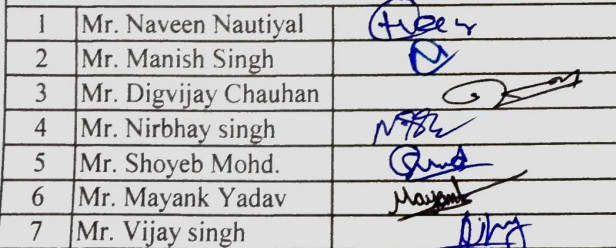 1 Mr. Naveen Nautiyal
2 Mr. Manish Singh
3 Mr. Digvijay Chauhan
4 Mr. Nirbhay singh
5 Mr. Shoyeb Mohd.
6 Mr. Mayank Yadav Mayank
7 Mr. Vijay singh